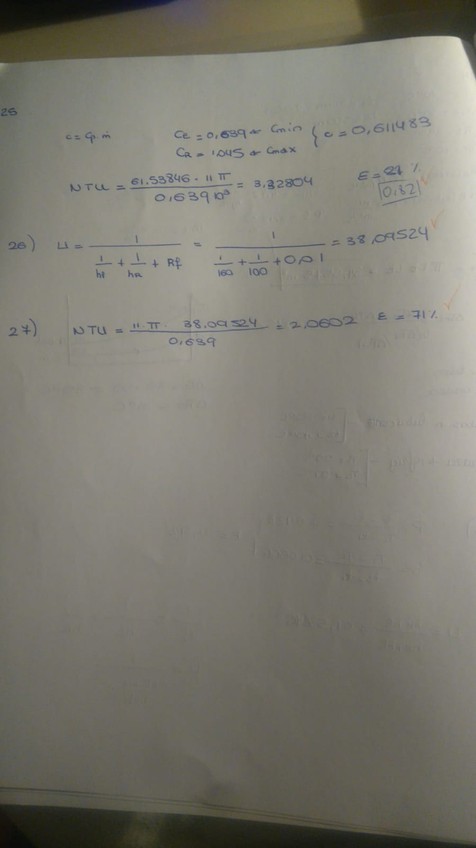 25
c = cp.ṁ Cc = 0,639 → Cmin { c = 0,611483
CR = 1.045 → Cmax
NTU = 61.53846 . 11 π / 0,639 10³ = 3,32804 ε = 81 %
0,82 ✓
26) U = 1 / (1/hi + 1/ha + Rf) = 1 / (1/160 + 1/100 + 0,01) = 38.09524 ✓
27) NTU = 11 π . 38.09524 / 0,639 = 2.0602 ε = 71 % ✓